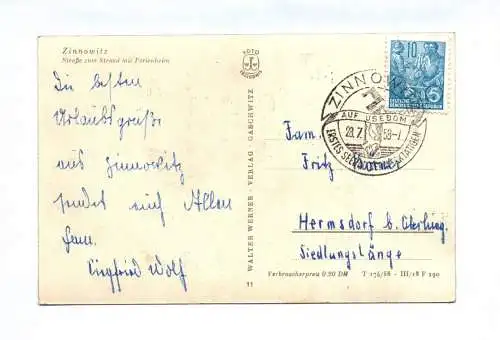 Zinnowitz
Straße zum Strand mit Ferienheim
Die besten
Urlaubsgrüße
aus Zinnowitz
sendet euch Allen
Fam.
Siegfried Wolf
FOTO
WALTER WERNER · VERLAG · GASCHWITZ
11
10
DEUTSCHE
DEMOKRATISCHE REPUBLIK
ZINNOWITZ
AUF USEDOM
28.7.58-7
ERSTES SEEBAD DER WERKTÄTIGEN
Fam.
Fritz
Hermsdorf b.
Siedlungslänge
Verbraucherpreis 0.20 DM T 174/58 - III/18 F 190